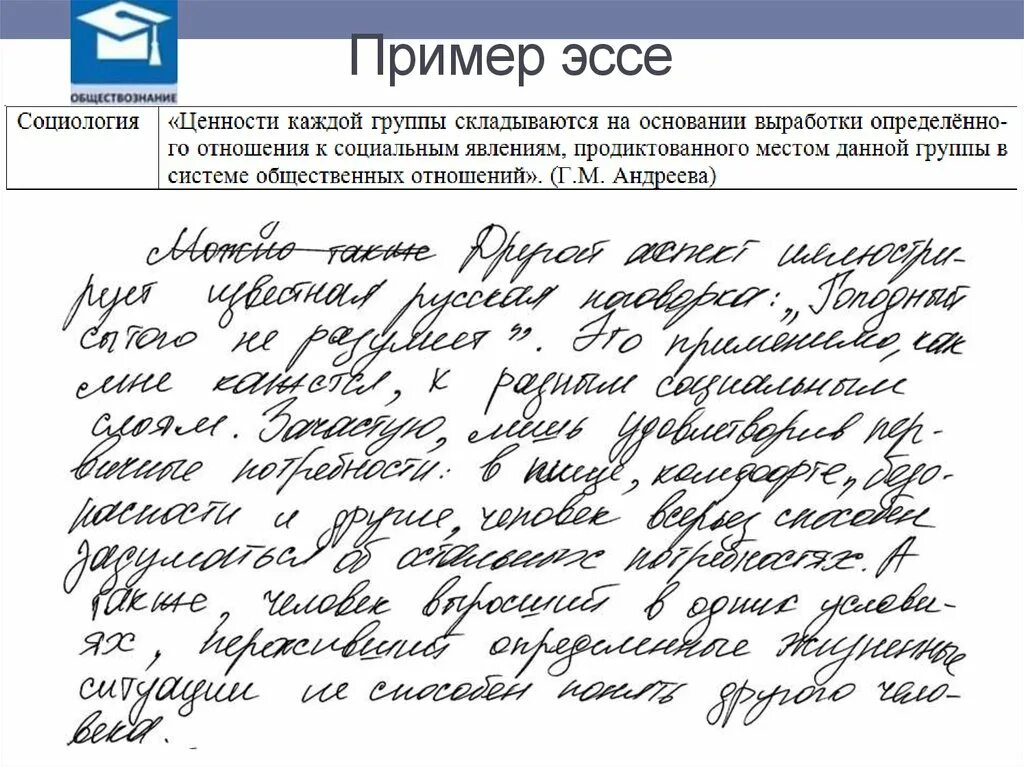 Пример эссе
ОБЩЕСТВОЗНАНИЕ
Социология
«Ценности каждой группы складываются на основании выработки определённо-
го отношения к социальным явлениям, продиктованного местом данной группы в
системе общественных отношений». (Г.М. Андреева)
Можно также Другой аспект иллюстри-
рует известная русская поговорка: „Голодный
сытого не разумеет”. Это применимо, как
мне кажется, к разным социальным
слоям. Зачастую, лишь удовлетворив пер-
вичные потребности: в пище, комфорте, безо-
пасности и другие, человек всерьез способен
задуматься об остальных потребностях. А
также, человек выросший в одних услови-
ях, переживший определенные жизненные
ситуации не способен понять другого чело-
века.